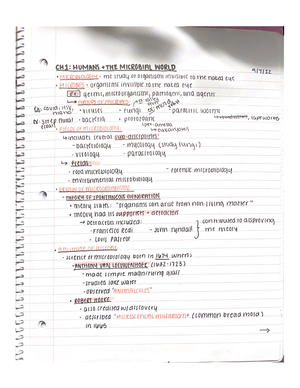 CH 1: HUMANS + THE MICROBIAL WORLD
9/7/22
• MICROBIOLOGY - the study of organisms invisible to the naked eye
• MICROBES - organisms invisible to the naked eye
EX: germs, microorganisms, pathogens, and agents
• viruses • fungi • parasitic worms
• bacteria • protozoans
• FIELDS OF MICROBIOLOGY
↳ includes several sub-disciplines:
- bacteriology - mycology (study fungi)
- virology - parasitology
- food microbiology - forensic microbiology
- environmental microbiology
THEORY OF SPONTANEOUS GENERATION
• theory states: "organisms can arise from non-living matter"
• theory had its supporters + detractors
↳ detractors included:
- Francesco Redi - John Tyndall
- Louis Pasteur
contributed to disproving the theory
• science of microbiology born in 1674 w/
• ANTHONY VAN LEEUWENHOEK (1632-1723)
- made simple magnifying glass
- studied lake water
- observed "animalcules"
• ROBERT HOOKE
- also credited w/ discovery
- described "microscopical mushroom" (common bread mold)
in 1665
→